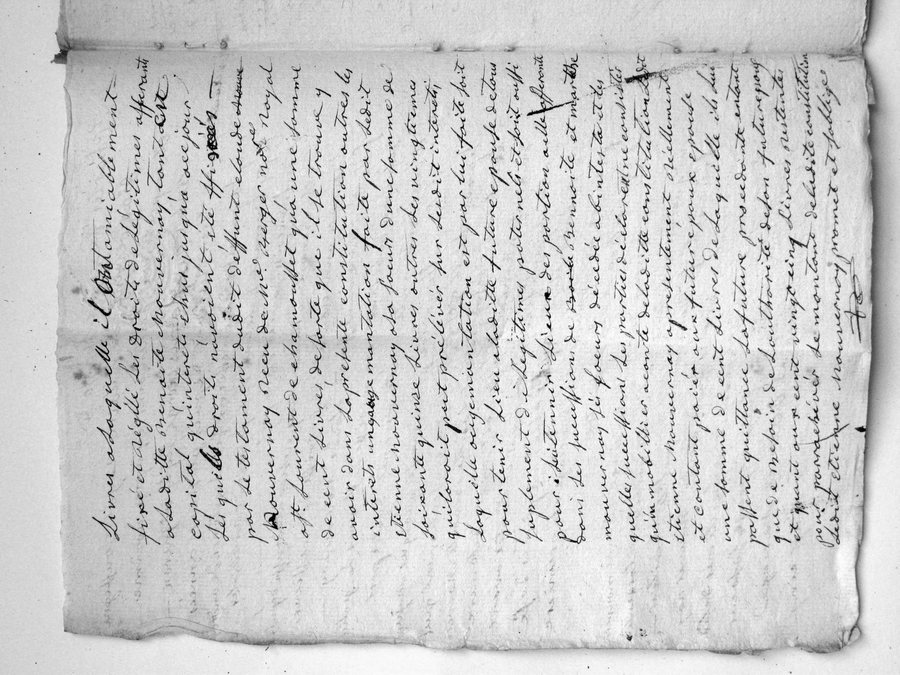 Livres a laquelle il ont amiablement
fixé et réglé les droits de légitimes afferants
a laditte Benoite Nouvernay, tant en
capital qu'interets échus jusqua ce jour
Lesquels droits n'avoient été fixés
par le testament dudit deffunt claude
Nouvernay reçu de Me verger nore royal
a st Laurent de chamousset qu'a une somme
de cent Livres de sorte que il se trouve y
avoir dans la presente constitution outre les
interets une augmentation faite par ledit
Etienne nouvernay a sa soeur d'une somme de
soixante quinse Livres outre les vingt cinq
qu'il aroit pret prélévér sur lesdit interets,
Laquelle augmentation est par lui faite soit
pour tenir Lieu a laditte future epouse de tous
suplement de légitimes paternels et soit aussi
pour lui tenir Lieu des portion a elle afferante
dans les successions de Benoite et marie
nouvernay ses soeurs décédée abintestat les
quelles successions les parties déclarent ne consister
qu'en mobillier acompte de laditte constitution ledit
etienne Nouvernay a presentement réellement
et contant paié aux futurs epoux
une somme de cent Livres de laquelle ils lui
passent quittance la future procedant entant
que de besoin de Lauthorité de son futur epoux
et quant aux cent vingt cinq Livres restantes
pour parachévér le montant de ladite constitution
Ledit etienne Nouvernay promet et soblige